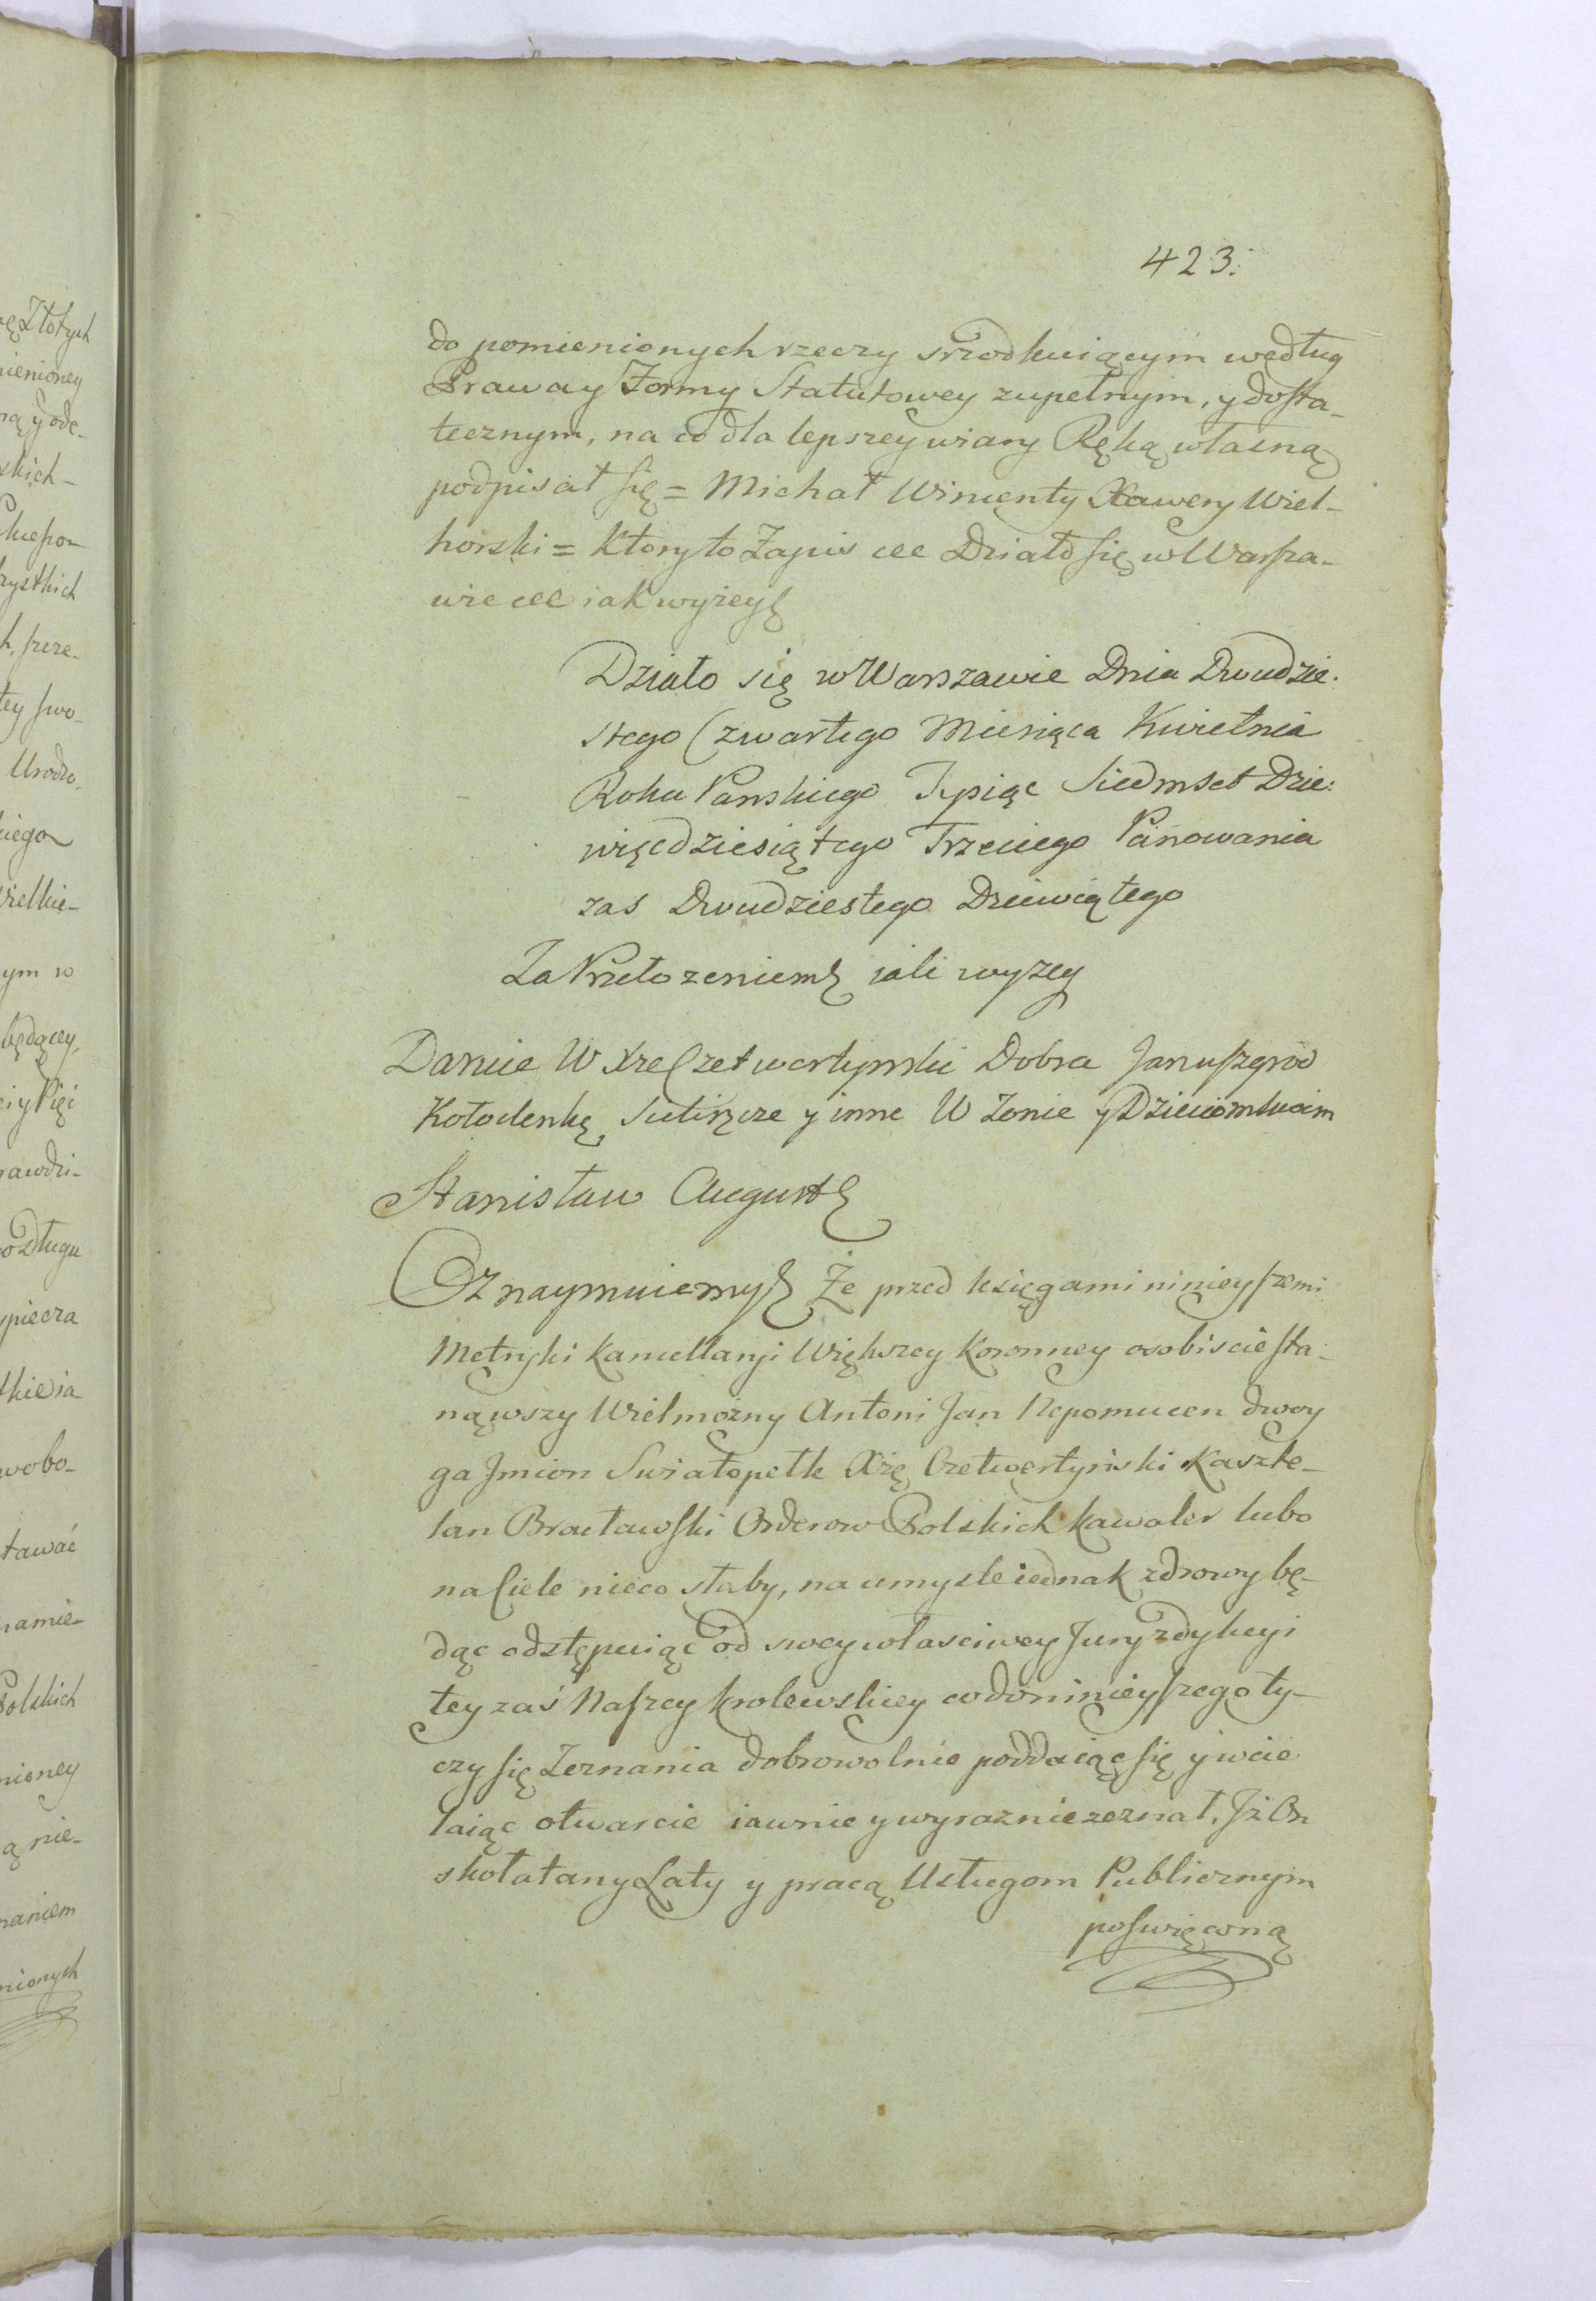 423.
do pomienionych rzeczy srzodkuiącym według
Prawa y Formy Statutowey zupełnym, y dosta-
tecznym, na co dla lepszey wiary Ręką własną
podpisał się = Michał Wincenty Xawery Wiel-
horski = Ktory to Zapis etc Działo się w Warsza-
wie etc iak wyżey
Działo się w Warszawie Dnia Dwudzie.
stego Czwartego Miesiąca Kwietnia
Roku Panskiego Tysiąc Siedmset Dzie:
więcdziesiątego Trzeciego Panowania
zas Dwudziestego Dziewiątego
Za Przełozeniem iak wyzey
Danie W Xze Czetwertynski Dobra Januszgrod
Kołodenkę, y inne W Zonie y Dzieciom swoim
Stanisław August
Oznaymuiemy Że przed księgami ninieyszemi
Metryki Kancellaryi Większey Koronney osobiscie sta-
nąwszy Wielmożny Antoni Jan Nepomucen dwoy
ga Jmion Swiatopełk Xżę Czetwertyński Kaszte-
lan Bracławski Orderow Polskich Kawaler lubo
na Ciele nieco słaby, na umysle iednak zdrowy bę-
dąc odstępuiąc od swey własciwey Juryzdykcyi
tey zaś Naszey Krolewskiey co do ninieyszego ty-
czy się Zeznania dobrowolnie poddaiąc się y wcie
laiąc otwarcie iawnie y wyraznie zeznał. Jż On
skołatany Laty y pracą Usługom Publicznym
poswięconą